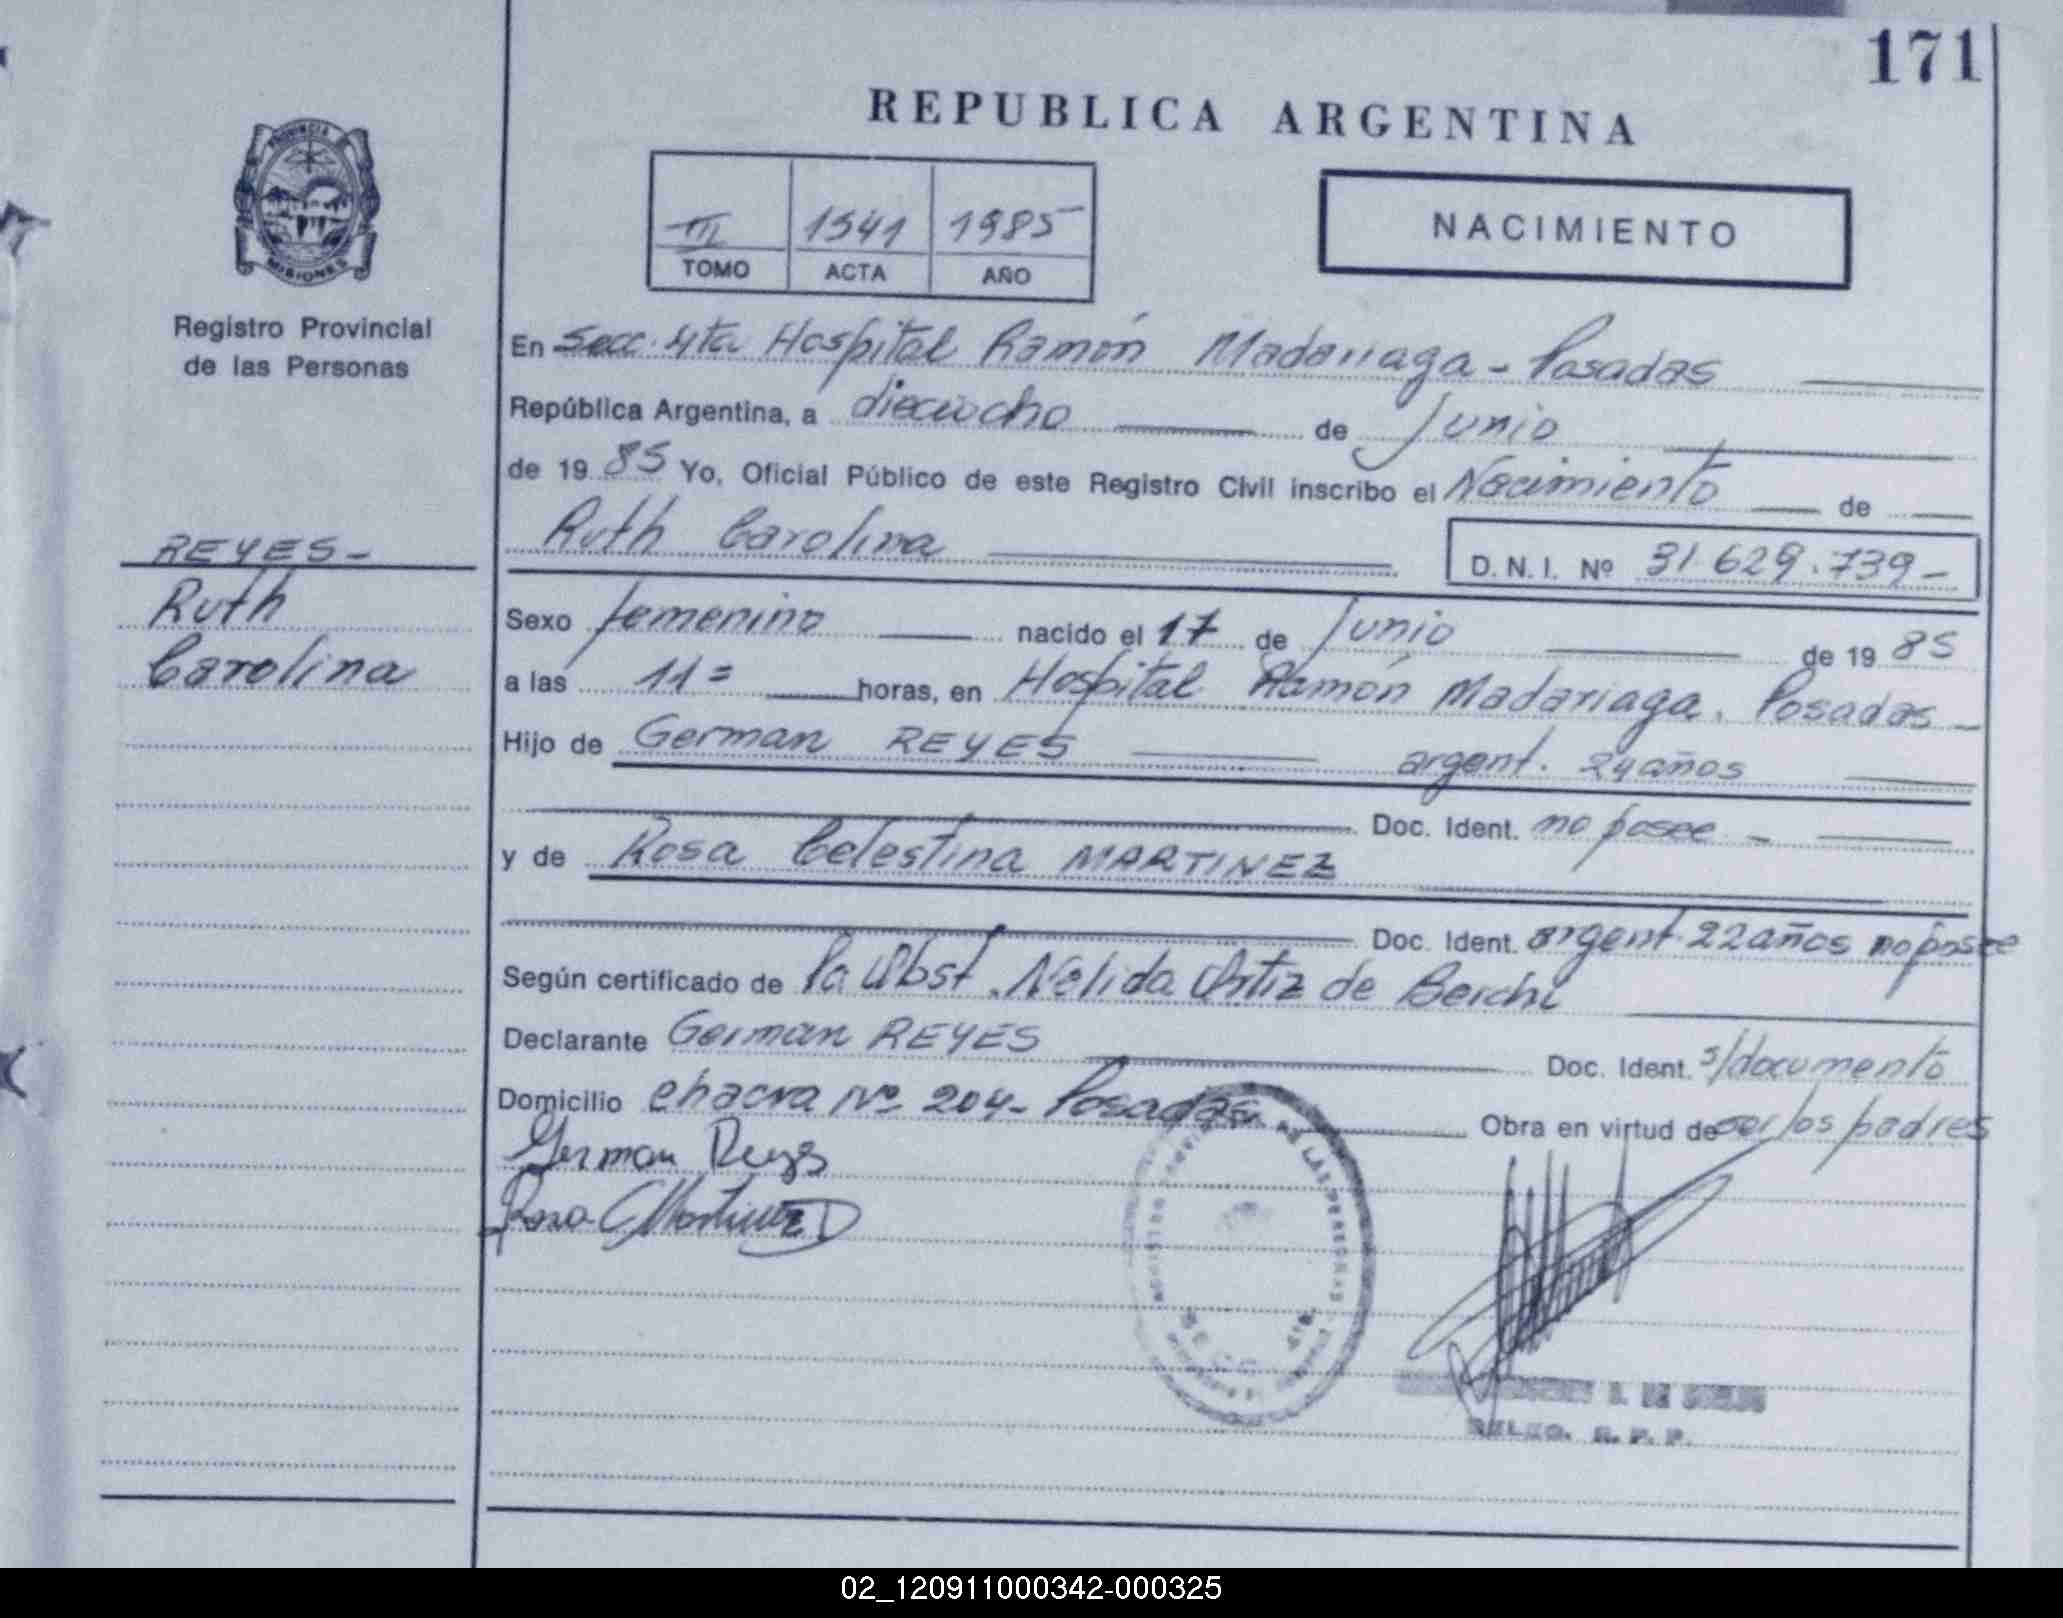 171
REPUBLICA ARGENTINA
PROVINCIA
MISIONES
Registro Provincial
de las Personas
III 1541 1985
TOMO ACTA AÑO
NACIMIENTO
En Secc. 4ta Hospital Ramón Madariaga - Posadas
República Argentina, a dieciocho de Junio
de 19 85 Yo, Oficial Público de este Registro Civil inscribo el Nacimiento de
Ruth Carolina D.N.I. Nº 31.629.739-
REYES-
Ruth
Carolina
Sexo femenino nacido el 17 de Junio de 19 85
a las 11= horas, en Hospital Ramón Madariaga. Posadas-
Hijo de German REYES argent. 24 años
Doc. Ident. no posee -
y de Rosa Celestina MARTINEZ
Doc. Ident. argent. 22 años no posee
Según certificado de la Obst. Nélida Ortiz de Berchi
Declarante German REYES Doc. Ident. s/documento
Domicilio chacra Nº 204- Posadas Obra en virtud de ser los padres
German Reyes
Rosa C Martinez
DE LAS PERSONAS
SECC. 4ta
R. P. P.
02_120911000342-000325